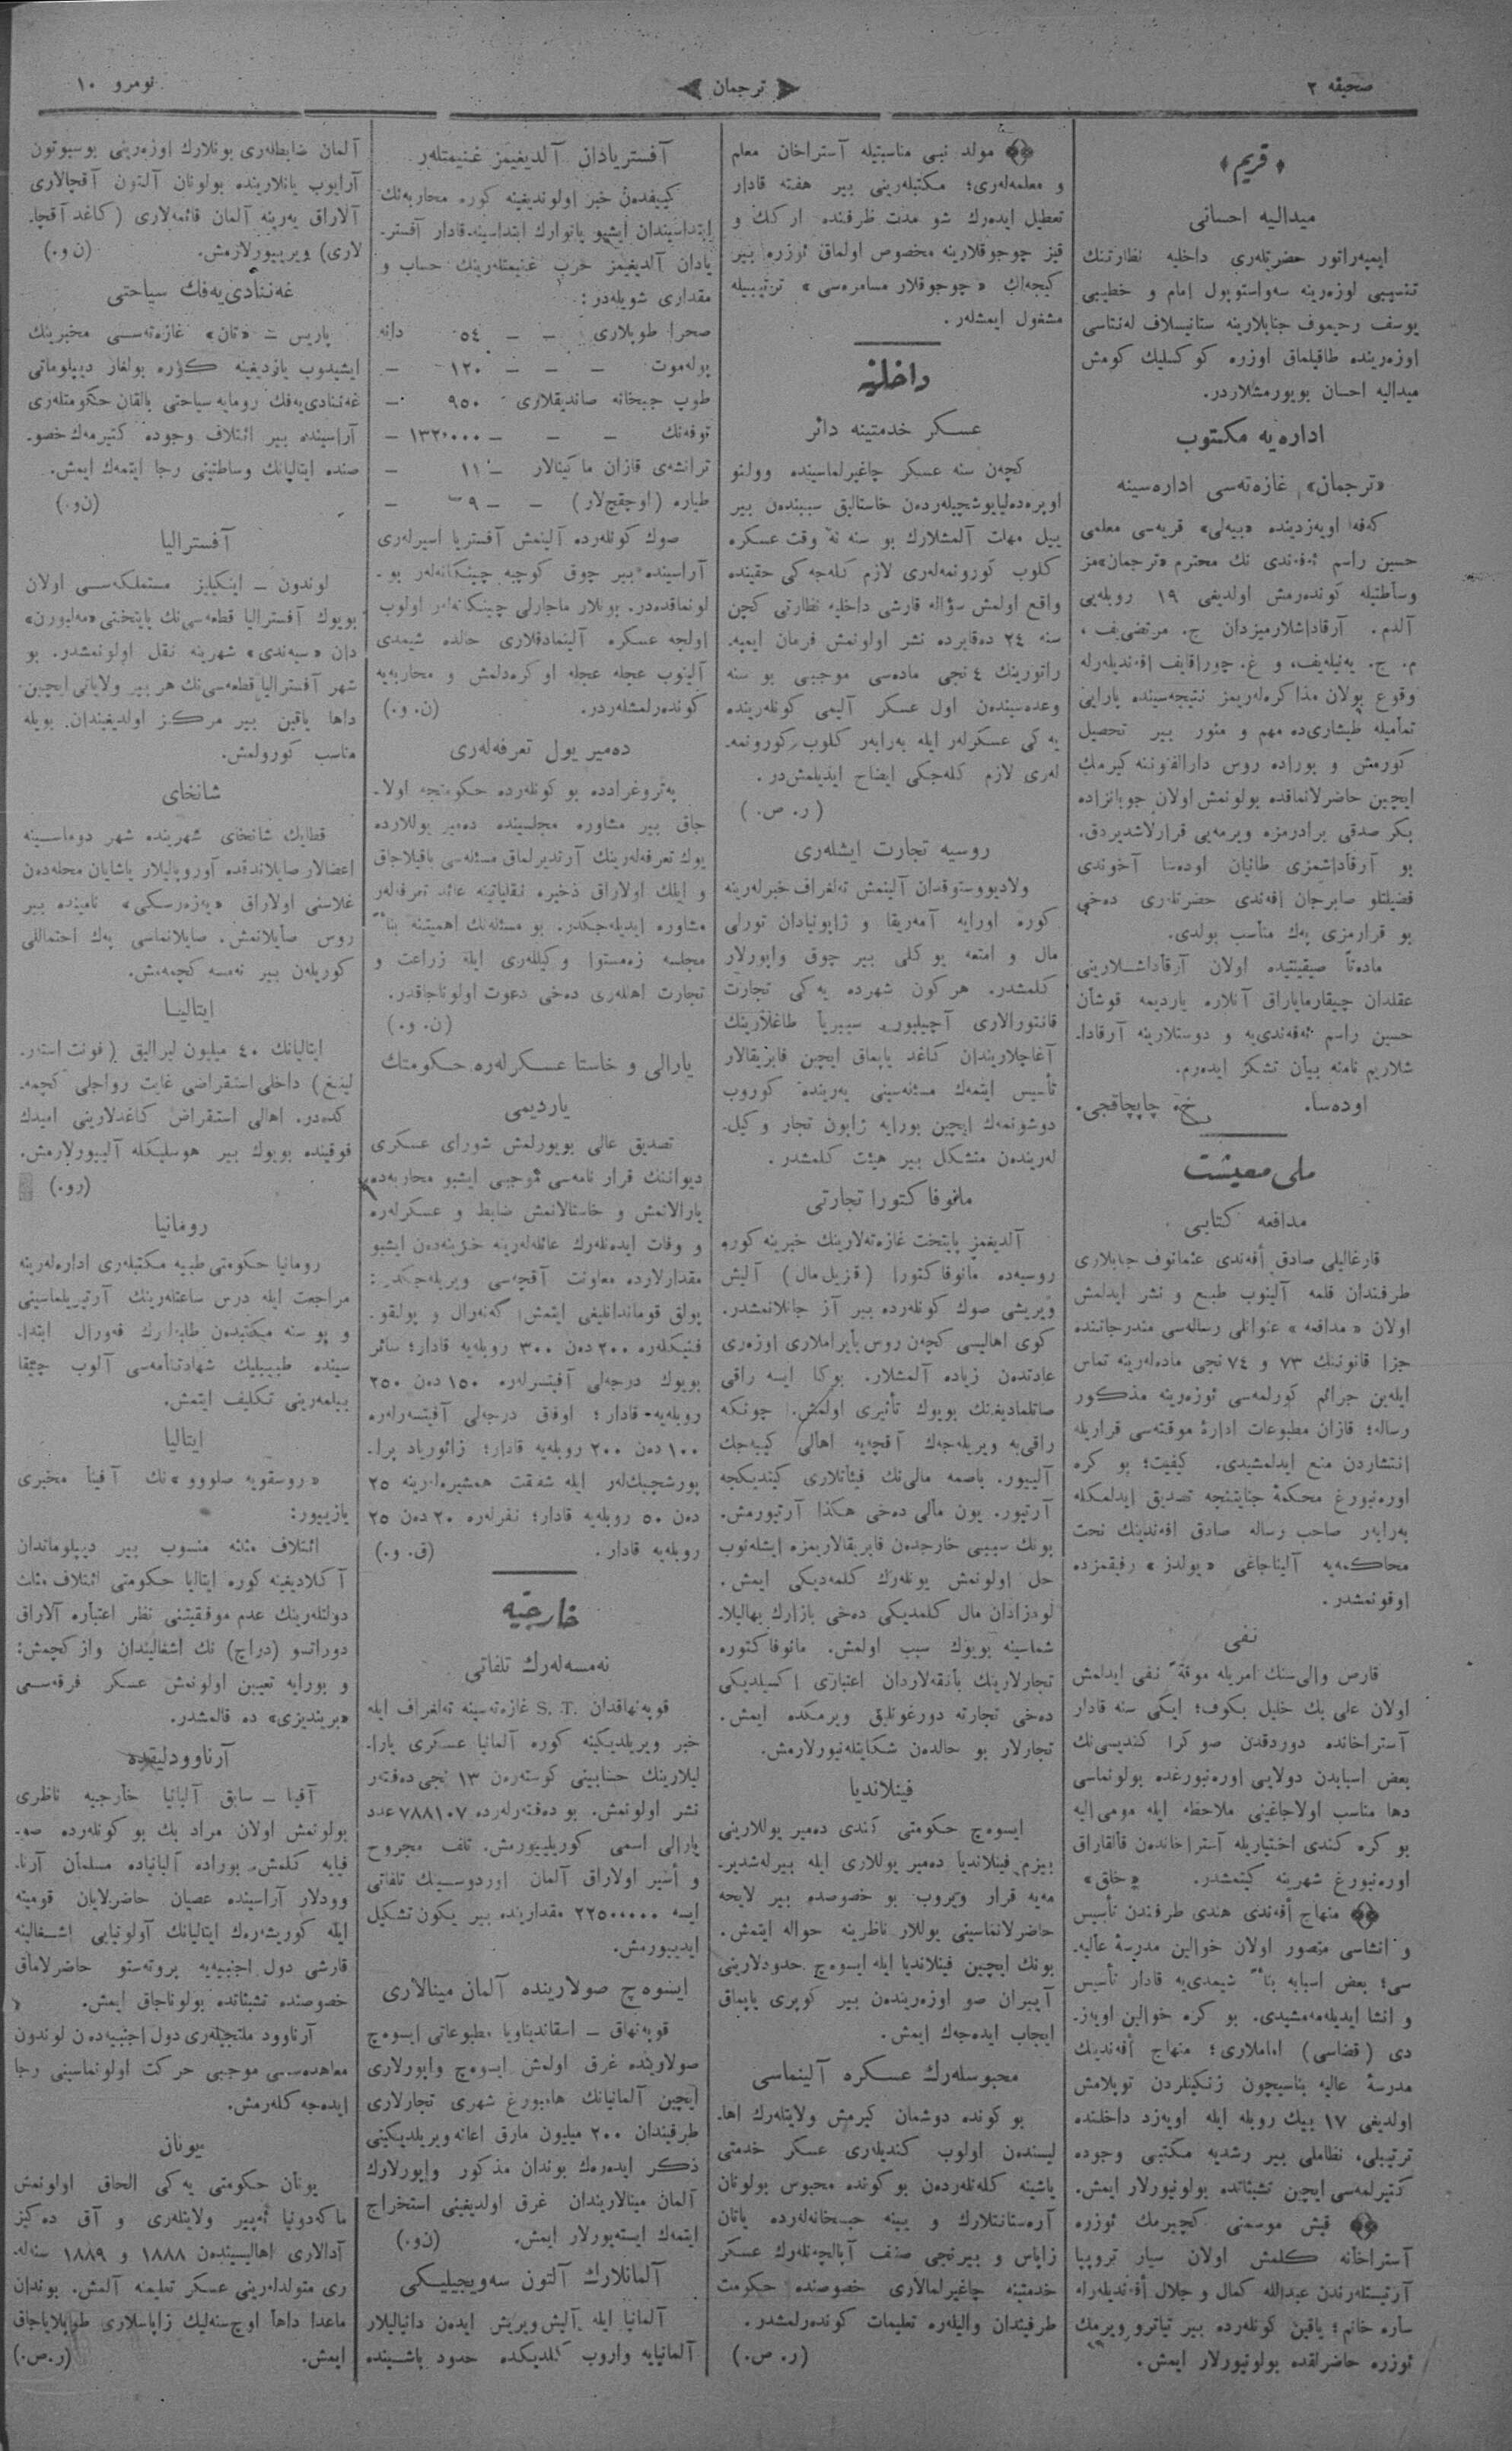 صحیفه ٢
ترجمان
نومرو ١٠
قریم
میدالیه احسانی
ایمپەراتور حضرتلەری داخلیه نظارتینك
تنسیبی اوزەرینه سەواستوپول إمام و خطیبی
یوسف رحیموف جنابلارینه ستانیسلاف لەنتاسی
اوزەرینده طاقیلماق اوزره كوكسلیك كومش
میدالیه احسان بویورمشلاردر.
ادارەیه مكتوب
«ترجمان» غازەتەسی ادارەسینه
كەفه اویەزدینده «بیەلی» قریەسی معلمی
حسین راسم ئەفەندی نك محترم «ترجمان»مز
وسأطتیله كوندەرمش اولدیغی ١٩ روبلەیی
آلدم. آرقاداشلارمیزدان ج. مرتضییف،
م. ج. یەنیلەیف، و غ. چوراقایف افەندیلەرله
وقوع بولان مذاكرەلەریمز نتیجەسینده یارایی
تمأمیله طیشاریده مهم و منور بیر تحصیل
كورمش و بوراده روس دارالفنوننه كیرمك
ایچین حاضرلانماقده بولونمش اولان جوبانزاده
بكر صدقی برادرمزه ویرمەیی قرارلاشدیردق.
بو آرقاداشمزی طانیان اودەسا آخوندی
فضیلتلو صابرجان افەندی حضرتلەری دەخی
بو قرارمزی پەك مناسب بولدی.
مادەتاً صیقینتیده اولان آرقاداشلارینی
عقلدان چیقارمایاراق آنلاره یاردیمه قوشأن
حسین راسم ئەفەندییه و دوستلارینه آرقادا-
شلاریم نامنه بیأن تشكر ایدەرم.
اودەسا. خ. چاپچاقجی.
ملی معیشت
مدافعه كتابی
قارغالیلی صادق أفەندی عثمانوف جنابلاری
طرفندان قلمه آلینوب طبع و نشر ایدلمش
اولان «مدافعه» عنوانلی رسالەسی مندرجاتنده
جزا قانوننك ٧٣ و ٧٤نجی مادەلەرینه تماس
ایلەین جرائم كورلمەسی ئوزەرینه مذكور
رساله؛ قازان مطبوعات ادارۀ موقتەسی قراریله
انتشاردن منع ایدلمشیدی. كیفیت؛ بو كره
اورەنبورغ محكمۀ جنایتنجه تصدیق ایدلمكله
بەرابەر صاحب رساله صادق افەندینك تحت
محاكمەیه آلیناجاغی «یولدز» رفیقمزده
اوقونمشدر.
نفی
قارص والیسنك امریله موقةً نفی ایدلمش
اولان علی بك خلیل بكوف؛ ایكی سنه قادار
آستراخانده دوردقدن صوكرا كندیسینك
بعض اسبابدن دولایی اورەنبورغده بولونماسی
دها مناسب اولاجاغینی ملاحظه ایله مومیالیه
بو كره كندی اختیاریله آستراخاندەن قالقاراق
اورەنبورغ شهرینه كیتمشدر. «خلق»
منهاج أفەندی هندی طرفندن تأسیس
و انشاسی متصور اولان خوالین مدرسۀ عالیه-
سی؛ بعض اسبابه بناءً شیمدییه قادار تأسیس
و انشا ایدیلەمەمشیدی. بو كره خوالین اویەز-
دی (قضاسی) اماملاری؛ منهاج أفەندینك
مدرسۀ عالیه بناسیچون زنكینلردن توپلامش
اولدیغی ١٧ بیك روبله ایله اویەزد داخلنده
ترتیبلی، نظاملی بیر رشدیه مكتبی وجوده
كتیرلمەسی ایچین تشبثاتده بولونیورلار ایمش.
قیش موسمنی كچیرمك ئوزره
آستراخانه كلمش اولان سیار تروپپا
آرتیستلەرندن عبدالله كمال و جلال أفەندیلەرله
ساره خانم؛ یاقین كونلەرده بیر تیاترو ویرمك
ئوزره حاضرلقده بولونیورلار ایمش.
مولد نبی مناسبتیله آستراخان معلم
و معلمەلەری؛ مكتبلەرینی بیر هفته قادار
تعطیل ایدەرك شو مدت ظرفنده اركك و
قیز چوجوقلارینه مخصوص اولماق ئوزره بیر
كیجەلك «چوجوقلار مسامرەسی» ترتیبیله
مشغول ایمشلەر.
داخلیه
عسكر خدمتینه دائر
كچەن سنه عسكر چاغیرلماسینده وولنو
اوپرەدەلیایوشچیلەردەن خاستالیق سببندەن بیر
ییل مهلت آلمشلارك بو سنه نه وقت عسكره
كلوب كورونمەلەری لازم كلەجەكی حقینده
واقع اولمش سؤاله قارشی داخلیه نظارتی كچن
سنه ٢٤ دەقابرده نشر اولونمش فرمان ایمپه-
راتورینك ٤نجی مادەسی موجبی بو سنه
وعدەسیندەن اول عسكر آلیمی كونلەرینده
یەكی عسكرلەر ایله بەرابەر كلوب كورونمه-
لەری لازم كلەجكی ایضاح ایدیلمشدر.
(ر. ص.)
روسیه تجارت ایشلەری
ولادیووستوقدان آلینمش تەلغراف خبرلەرینه
كوره اورایه آمەریقا و ژاپونیادان تورلی
مال و امتعه یوكلی بیر چوق واپورلار
كلمشدر. هر كون شهرده یەكی تجارت
قانتورالاری آچیلیور. سیبریأ طاغلارینك
آغاچلاریندان كاغد یاپماق ایچین فابریقالار
تأسیس ایتمەك مسئلەسینی یەرینده كوروب
دوشونمەك ایچین بورایه ژاپون تجار وكیل-
لەریندەن متشكل بیر هیئت كلمشدر.
مانوفاكتورا تجارتی
آلدیغمز پایتخت غازەتەلارینك خبرینه كوره
روسیەده مانوفاكتورا (قزیلمال) آلیش
ویریشی صوك كونلەرده بیر آز جانلانمشدر.
كوی اهالیسی كچەن روس بأیراملاری اوزەری
عادتدەن زیاده آلمشلار. بوكا ایسه راقی
صاتلمادیغنك بویوك تأثیری اولمش. چونكه
راقییه ویریلەجەك آقچەیه اهالی كییەجك
آلییور. باصمه مالینك فیئاتلاری كیتدیكجه
آرتیور. یون مالی دەخی هكذا آرتیورمش.
بونك سببی خارجدەن فابریقالاریمزه ایشلەنوب
حل اولونمش یونلەرك كلمەدیكی ایمش.
لودزادان مال كلمدیكی دەخی بازارك بهالیلا-
شماسینه بویوك سبب اولمش. مانوفاكتوره
تجارلارینك بأنقەلاردان اعتباری اكسیلدیكی
دەخی تجارته دورغونلق ویرمكده ایمش.
تجارلار بو حالدەن شكایتلەنیورلارمش.
فینلاندیا
ایسوەچ حكومتی كندی دەمیر یوللارینی
بیزم فینلاندیا دەمیر یوللاری ایله بیرلەشدیر-
مەیه قرار ویروب بو خصوصده بیر لایحه
حاضرلانماسینی یوللار ناظرینه حواله ایتمش.
بونك ایچین فینلاندیا ایله ایسوەچ حدودلارینی
آییران صو اوزەریندەن بیر كوپری یاپماق
ایجاب ایدەجەك ایمش.
محبوسلەرك عسكره آلینماسی
بو كونده دوشمان كیرمش ولایتلەرك اها-
لیسندەن اولوب كندیلەری عسكر خدمتی
یاشینه كلەنلەردەن بو كونده محبوس بولونان
آرەستانتلارك و یینه حبسخانەلەرده یاتان
زاپاس و بیرنجی صنف آپالچەنلەرك عسكر
خدمتینه چاغیرلمالاری خصوصنده حكومت
طرفیندان والیلەره تعلیمات كوندەرلمشدر.
(ر. ص.)
آفستریادان آلدیغیمز غنیمتلەر
كییفدەن خبر اولوندیغینه كوره محاربەنك
إبتداسیندان ایشبو یانوارك ابتداسینه قادار آفستر-
یادان آلدیغیمز حرب غنیمتلەرینك حساب و
مقداری شویلەدر:
صحرا طوپلاری – – ٥٤ دانه
پولەموت – – – ١٢٠ –
طوپ جبخانه صاندیقلاری ٩٥٠ –
توفەنك – – – ١٣٢٠٠٠ –
ترانشەی قازان ماكینالار – ١١ –
طیاره (اوچقیچلار) – – ٩ –
صوك كونلەرده آلینمش آفستریا اسیرلەری
آراسینده بیر چوق كوچبه چینكانەلەر بو-
لونماقدەدر. بونلار ماجارلی چینكانەلەر اولوب
اولجه عسكره آلینمادقلاری حالده شیمدی
آلینوب عجله عجله اوكرەدلمش و محاربەیه
كوندەرلمشلەردر. (ن. و.)
دەمیر یول تعرفەلەری
پەتروغرادده بو كونلەرده حكومتچه اولا-
جاق بیر مشاوره مجلسینده دەمیر یوللارده
یوك تعرفەلەرینك آرتدیرلماق مسئلەسی باقیلاجاق
و ایلك اولاراق ذخیره نقلیاتینه عائد تعرفەلەر
مشاوره ایدیلەجكدر. بو مسئلەنك اهمیتنه بناءً
مجلسه زەمستوا وكیللەری ایله زراعت و
تجارت اهللەری دەخی دعوت اولوناجاقدر.
(ن. و.)
یارالی و خاستا عسكرلەره حكومتك
یاردیمی
تصدیق عالی بویورلمش شورای عسكری
دیواننك قرار نامەسی موجبی ایشبو محاربەده
یارالانمش و خاستالانمش ضابط و عسكرلەره
و وفات ایدەنلەرك عائلەلەرینه خزینەدەن ایشبو
مقدارلارده معاونت آقچەسی ویریلەجكدر:
پولق قوماندانلیغی ایتمش گەنەرال و پولقو-
فنیكلەره ٢٠٠دەن ٣٠٠ روبلەیه قادار؛ سائر
بویوك درجەلی آفیتسرلەره ١٥٠دەن ٢٥٠
روبلەیه قادار؛ اوفاق درجەلی آفیتسەرلەره
١٠٠دەن ٢٠٠ روبلەیه قادار؛ زائوریاد پرا-
پورشچیكلەر ایله شفقت همشیرەلەرینه ٢٥
دەن ٥٠ روبلەیه قادار؛ نفرلەره ٢٠دەن ٢٥
روبلەیه قادار. (ق. و.)
خارجیه
نەمسەلەرك تلفاتی
قوپەنهاقدان S. T. غازەتەسینه تەلغراف ایله
خبر ویریلدیكینه كوره آلمانیا عسكری یارا-
لیلارینك حسابینی كوستەرەن ١٣نجی دەفتەر
نشر اولونمش. بو دەفتەرلەرده ٧٨٨١٠٧عدد
یارالی اسمی كوریلییورمش. تلف مجروح
و أسیر اولاراق آلمان اوردوسینك تلفاتی
ایسه ٢٢٥٠٠٠٠ مقدارینده بیر یكون تشكیل
ایدییورمش.
ایسوەچ صولارینده آلمان مینالاری
قوپەنهاق – اسقاندیناویا مطبوعاتی ایسوەچ
صولارینده غرق اولمش ایسوەچ واپورلاری
ایچین آلمانیانك هامبورغ شهری تجارلاری
طرفیندان ٢٠٠ میلیون مارق اعانه ویریلدیكینی
ذكر ایدەرەك بوندان مذكور واپورلارك
آلمان مینالاریندان غرق اولدیغینی استخراج
ایتمەك ایستەیورلار ایمش. (ن و.)
آلمانلارك آلتون سەویجیلیكی
آلمانیا ایله آلیش ویریش ایدەن دانیالیلار
آلمانیایه واروب كلدیكده حدود باشینده
آلمان ضابطلەری بونلارك اوزەرینی بوسبوتون
آرایوب یانلارینده بولونان آلتون آقچالاری
آلاراق یەرینه آلمان قائمەلاری (كاغد آقچا-
لاری) ویرییورلارمش. (ن و.)
غەننادییەفك سیاحتی
پاریس – «تان» غازەتەسی مخبرینك
ایشیدوب یازدیغینه كوره بولغار دیپلوماتی
غەننادییەفك رومایه سیاحتی بالقان حكومتلەری
آراسینده بیر ائتلاف وجوده كتیرمەك خصو-
صنده ایتالیانك وساطتینی رجا ایتمەك ایمش.
(ن و.)
آفسترالیا
لوندون – اینكیلیز مستملكەسی اولان
بویوك آفسترالیا قطعەسینك پایتختی «مەلبورن»
دان «سیدنی» شهرینه نقل اولونمشدر. بو
شهر آفسترالیا قطعەسینك هر بیر ولایاتی ایچین
داها یاقین بیر مركز اولدیغیندان بویله
مناسب كورولمش.
شانخای
قطایك شانخای شهرینده شهر دوماسینه
اعضالار صایلاندقده آوروپالیلار یاشایان محلەدەن
غلاسنی اولاراق «یەزەرسكی» نامینده بیر
روس صأیلانمش. صایلانماسی پەك احتماللی
كوریلەن بیر نەمسه كچمەمش.
ایتالیا
ایتالیانك ٤٠ میلیون لیرالیق (فونت استەر-
لینغ) داخلی استقراضی غایت رواجلی كچمه-
كدەدر. اهالی استقراض كاغدلارینی امیدك
فوقینده بویوك بیر هوسلیكله آلییورلارمش.
(ر و.)
رومانیا
رومانیا حكومتی طبیه مكتبلەری ادارەلەرینه
مراجعت ایله درس ساعتلەرینك آرتیریلماسینی
و بو سنه مكتبدەن طلبەلرك فەورال ابتدا-
سینده طبیبلیك شهادتنامەسی آلوب چیقا
بیلمەرینی تكلیف ایتمش.
ایتالیا
«روسقویه صلووو»نك آفینأ مخبری
یازییور:
ائتلاف مثلثه منسوب بیر دیپلوماتدان
آكلادیغینه كوره ایتالیا حكومتی ائتلاف مثلث
دولتلەرینك عدم موفقیتنی نظر اعتباره آلاراق
دوراتسو (دراچ) نك اشغالیندان وازكچمش؛
و بورایه تعیین اولونمش عسكر فرقەسی
«بریندیزی» ده قالمشدر.
آرناوودلیقده
آفینا – سابق آلبانیا خأرجیه ناظری
بولونمش اولان مراد بك بو كونلەرده صو-
فیایه كلمش. بوراده آلبانیاده مسلمان آرنا-
وودلار آراسینده عصیان حاضرلایان قومیته
ایله كوریشەرەك ایتالیانك آولونیایی اشغالینه
قارشی دول اجنبیەیه پروتەستو حاضرلاماق
خصوصنده تشبثاتده بولوناجاق ایمش.
آرناوود ملتجیلەری دول اجنبیەدەن لوندون
معاهدەسی موجبی حركت اولونماسینی رجا
ایدەجه كلەرمش.
یونان
یونأن حكومتی یەكی الحاق اولونمش
ماكەدونیا ئەپیر ولایتلەری و آق دەكیز
آدالاری اهالیسیندەن ١٨٨٨ و ١٨٨٩ سنەلە-
ری متولدلەرینی عسكر تعلیمنه آلمش. بوندان
ماعدا داها اوچ سنەلیك زاپاسلاری طوپلایاجاق
ایمش. (ر.ص.)